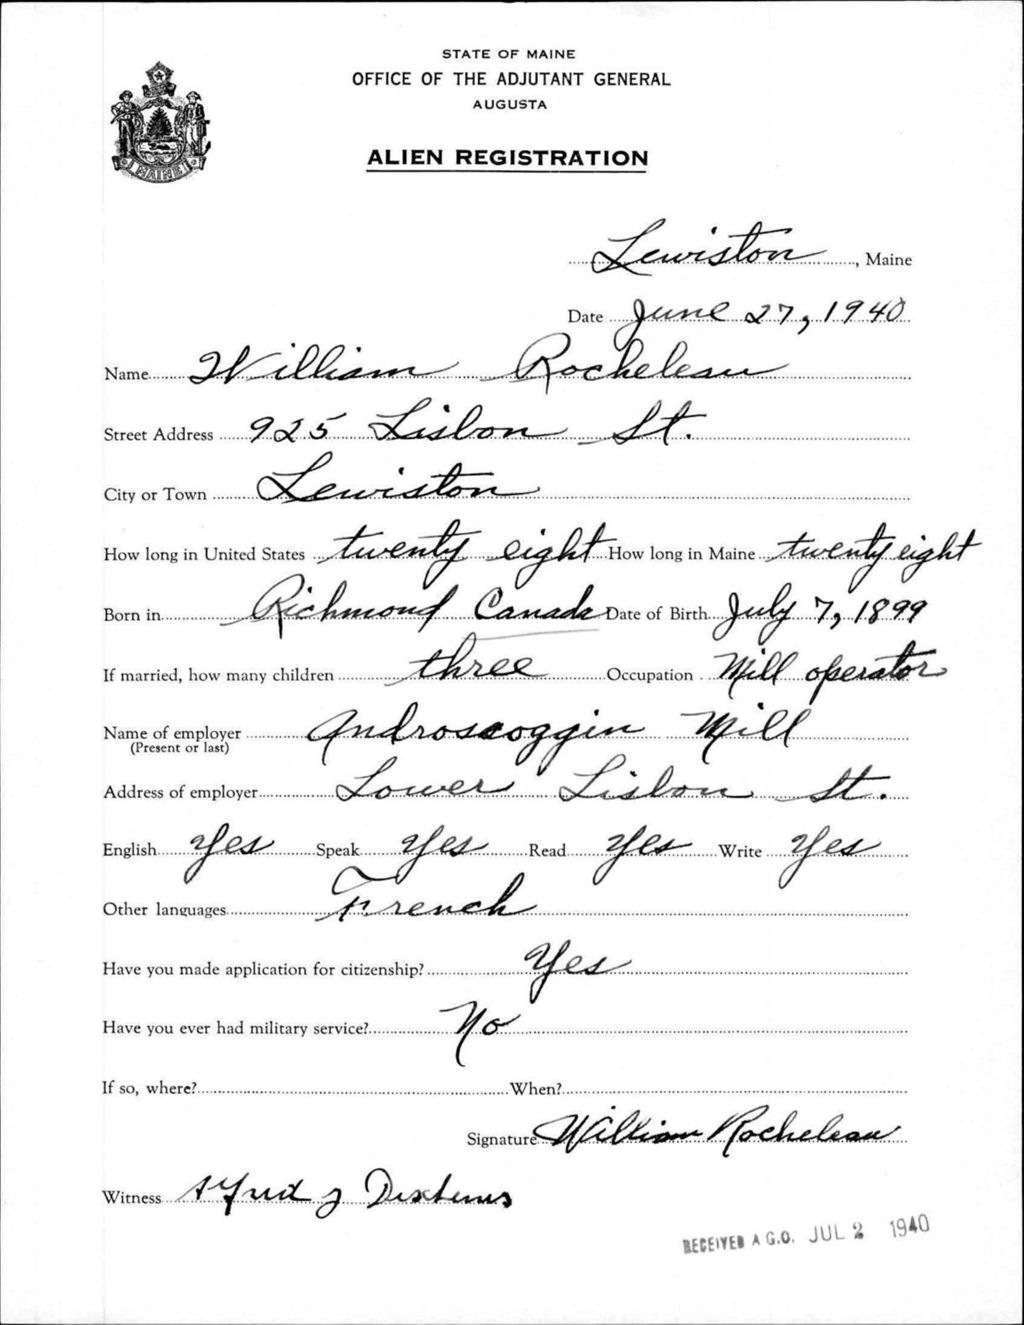 STATE OF MAINE
OFFICE OF THE ADJUTANT GENERAL
AUGUSTA
ALIEN REGISTRATION
MAINE
Lewiston, Maine
Date June 27, 1940
Name William Rocheleau
Street Address 925 Lisbon St.
City or Town Lewiston
How long in United States twenty eight How long in Maine twenty eight
Born in Richmond Canada Date of Birth July 7, 1899
If married, how many children three Occupation Mill operator
Name of employer Androscoggin Mill
(Present or last)
Address of employer Lower Lisbon St.
English Yes Speak Yes Read Yes Write Yes
Other languages French
Have you made application for citizenship? Yes
Have you ever had military service? No
If so, where? When?
Signature William Rocheleau
Witness J
RECEIVED A.G.O. JUL 2 1940